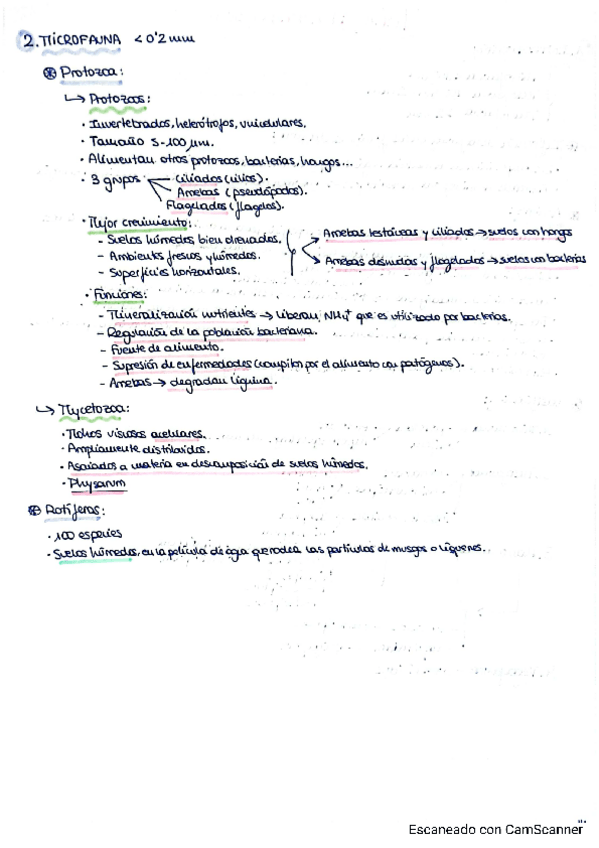 2. MICROFAUNA < 0'2 mm
Protozoa:
↳ Protozoos:
· Invertebrados, heterótrofos, unicelulares.
· Tamaño 5-100 μm.
· Alimentan otros protozoos, bacterias, hongos...
· 3 grupos
Ciliados (cilios).
Amebas (pseudópodos).
Flagelados (flagelos).
· Mejor crecimiento:
- Suelos húmedos bien drenados.
- Ambientes frescos y húmedos.
- Superficies horizontales.
Amebas testáceas y ciliados → suelos con hongos
Amebas desnudas y flagelados → suelos con bacterias
· Funciones:
- Mineralización nutrientes → Liberan NH₄⁺ que es utilizado por bacterias.
- Regulación de la población bacteriana.
- Fuente de alimento.
- Supresión de enfermedades (compiten por el alimento con patógenos).
- Amebas → degradan lignina.
↳ Mycetozoa:
· Mohos viscosos acelulares.
· Ampliamente distribuidos.
· Asociados a materia en descomposición de suelos húmedos.
· Physarum
Rotíferos:
· 100 especies
· Suelos húmedos, en la película de agua que rodea las partículas de musgos o líquenes.
Escaneado con CamScanner